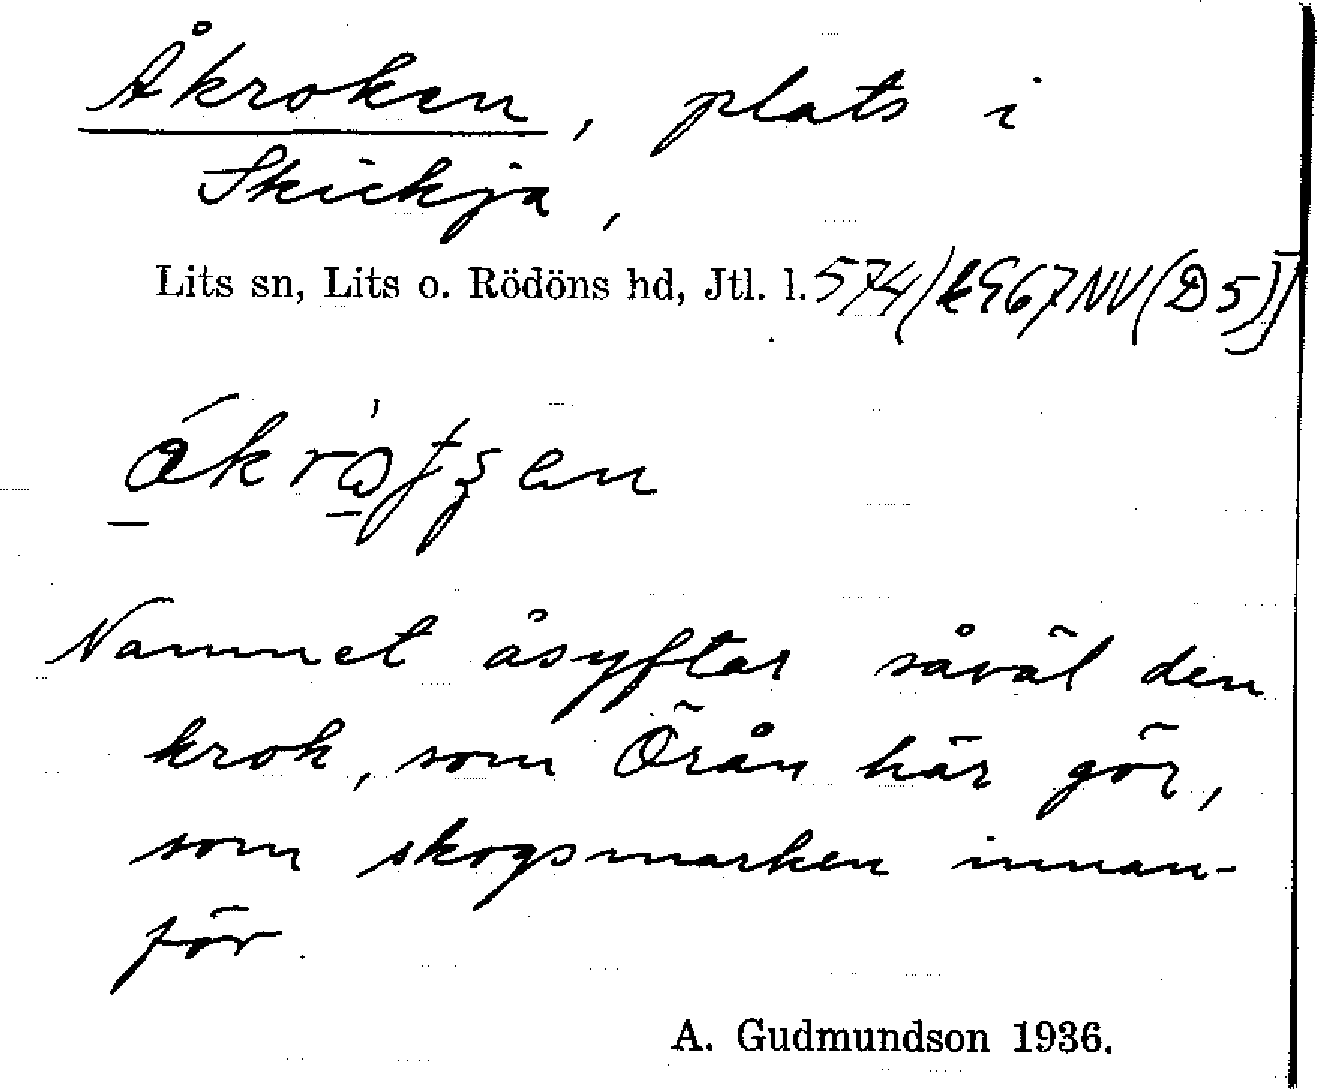 Åkroken, plats i
Skickja,
Lits sn, Lits o. Rödöns hd, Jtl. l. 574/k967NV(D5)
Namnet åsyftar såväl den
krok, som Örån här gör,
som skogsmarken innan-
för.
A. Gudmundson 1936.